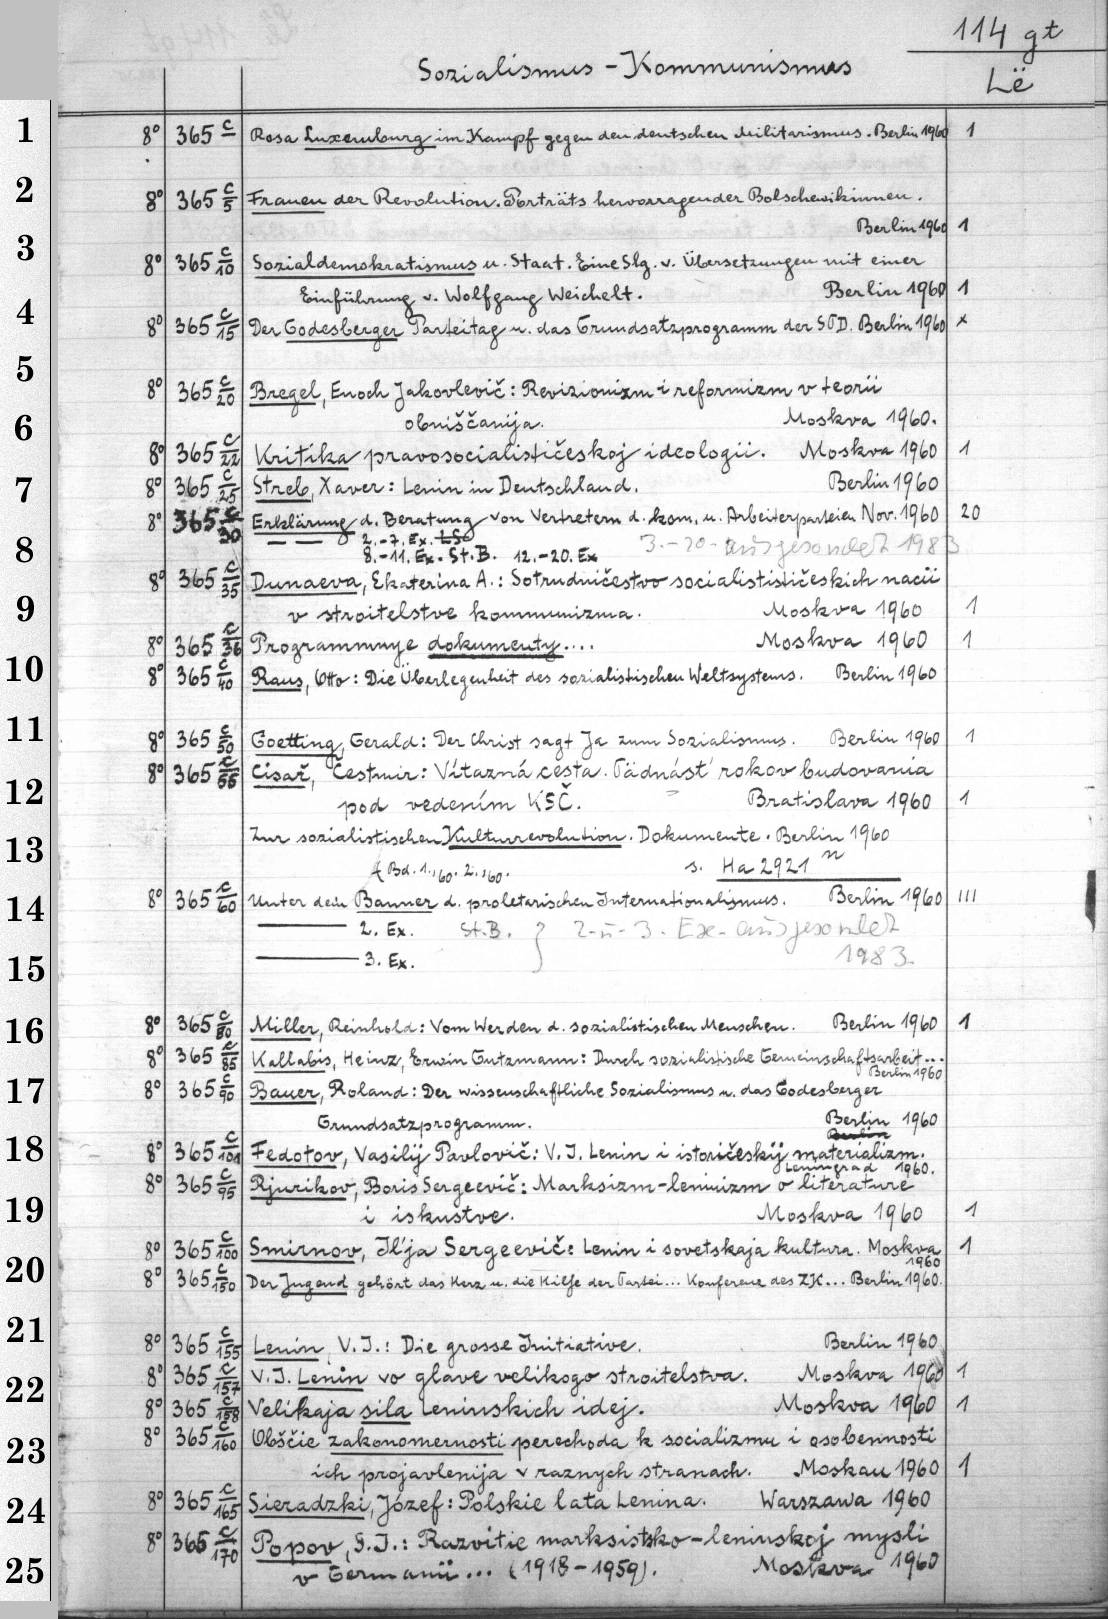 114 gt
Sozialismus - Kommunismus
Lë
1 8° 365 c Rosa Luxemburg im Kampf gegen den deutschen Militarismus. Berlin 1960 1
2 8° 365 c/5 Frauen der Revolution. Porträts hervorragender Bolschewikinnen.
Berlin 1960 1
3 8° 365 c/10 Sozialdemokratismus u. Staat. Eine Slg. v. Übersetzungen mit einer
Einführung v. Wolfgang Weichelt. Berlin 1960 1
4 8° 365 c/15 Der Godesberger Parteitag u. das Grundsatzprogramm der SPD. Berlin 1960 x
5 8° 365 c/20 Bregel, Enoch Jakovlevič: Revizionizm i reformizm v teorii
6 obniščanija. Moskva 1960.
8° 365 c/22 Kritika pravosocialističeskoj ideologii. Moskva 1960 1
7 8° 365 c/25 Streb, Xaver: Lenin in Deutschland. Berlin 1960
8° 365 c/30 Erklärung d. Beratung von Vertretern d. kom. u. Arbeiterparteien Nov. 1960 20
— — 2.-7. Ex. LSo 3.-20. ausgesondert 1983
8 8.-11. Ex. St.B. 12.-20. Ex
8° 365 c/35 Dunaeva, Ekaterina A.: Sotrudničestvo socialistističeskich nacii
9 v stroitelstve kommunizma. Moskva 1960 1
8° 365 c/36 Programmnye dokumenty.... Moskva 1960 1
10 8° 365 c/40 Raus, Otto: Die Überlegenheit des sozialistischen Weltsystems. Berlin 1960
11 8° 365 c/50 Goetting, Gerald: Der Christ sagt Ja zum Sozialismus. Berlin 1960 1
8° 365 c/55 Císař, Čestmír: Vítazná cesta. Pädnást' rokov budovania
12 pod vedením KSČ. Bratislava 1960 1
13 Zur sozialistischen Kulturrevolution. Dokumente. Berlin 1960
Bd. 1.,60. 2.,60. s. Ha 2921 n
14 8° 365 c/60 Unter dem Banner d. proletarischen Internationalismus. Berlin 1960 III
—— 2. Ex. St.B. } 2. u. 3. Ex. ausgesondert
15 —— 3. Ex. 1983
16 8° 365 c/80 Miller, Reinhold: Vom Werden d. sozialistischen Menschen. Berlin 1960 1
8° 365 c/85 Kallabis, Heinz, Erwin Gutzmann: Durch sozialistische Gemeinschaftsarbeit...
Berlin 1960
17 8° 365 c/90 Bauer, Roland: Der wissenschaftliche Sozialismus u. das Godesberger
Grundsatzprogramm. Berlin 1960
Berlin
18 8° 365 c/101 Fedotov, Vasilij Pavlovič: V.I. Lenin i istoričeskij materializm.
Leningrad 1960.
8° 365 c/95 Rjurikov, Boris Sergeevič: Marksizm-leninizm o literature
19 i iskustve. Moskva 1960 1
8° 365 c/100 Smirnov, Il'ja Sergeevič: Lenin i sovetskaja kultura. Moskva 1
1960
20 8° 365 c/150 Der Jugend gehört das Herz u. die Hilfe der Partei... Konferenz des ZK... Berlin 1960.
21 8° 365 c/155 Lenin, V.I.: Die grosse Initiative. Berlin 1960
8° 365 c/157 V.I. Lenin vo glave velikogo stroitelstva. Moskva 1960 1
22 8° 365 c/158 Velikaja sila Leninskich idej. Moskva 1960 1
23 8° 365 c/160 Obščie zakonomernosti perechoda k socializmu i osobennosti
ich projavlenija v raznych stranach. Moskau 1960 1
24 8° 365 c/165 Sieradzki, Józef: Polskie lata Lenina. Warszawa 1960
8° 365 c/170 Popov, S.I.: Razvitie marksistsko-leninskoj mysli
25 v Germanii... (1918-1959). Moskva 1960